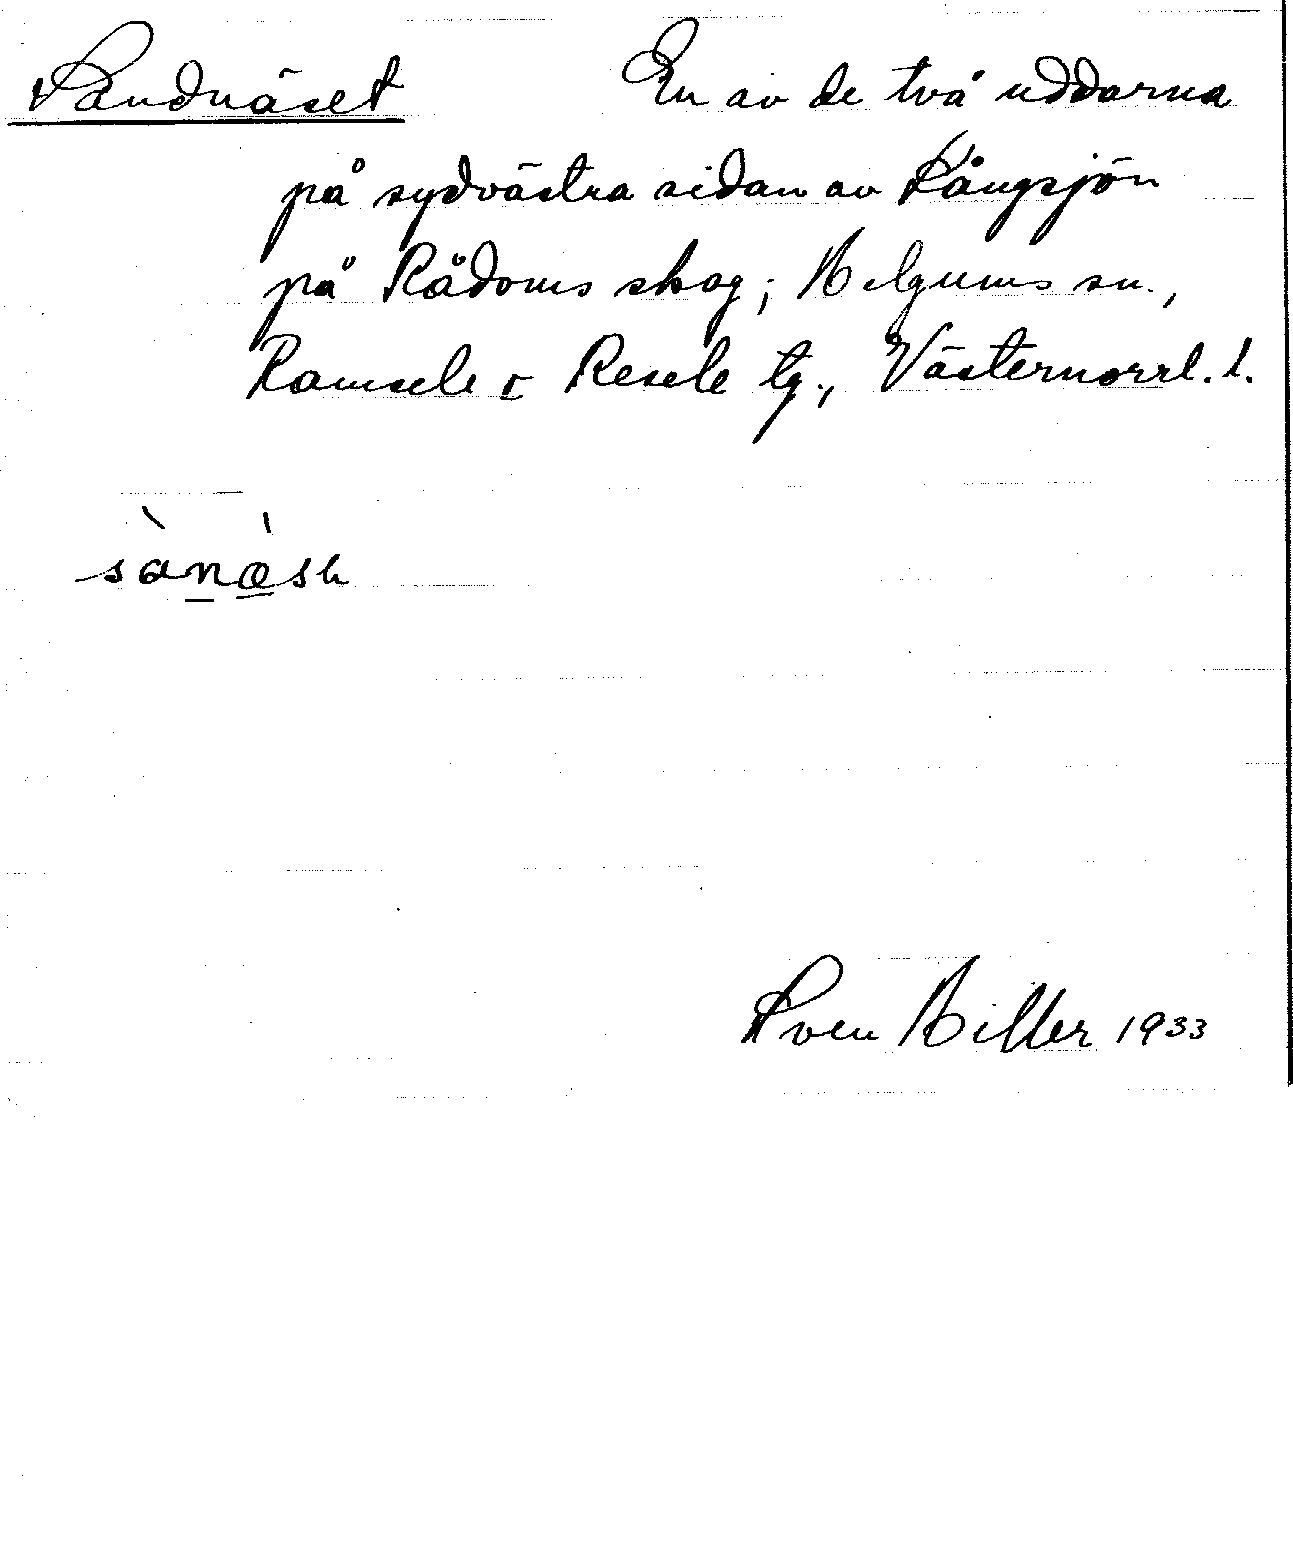 Sandnäset En av de två uddarna
på sydvästra sidan av Kångsjön
på Rådoms skog; Helgums sn.,
Ramsele o Resele tg., Västernorrl. l.
sànæ̀sh
Sven Hiller 1933